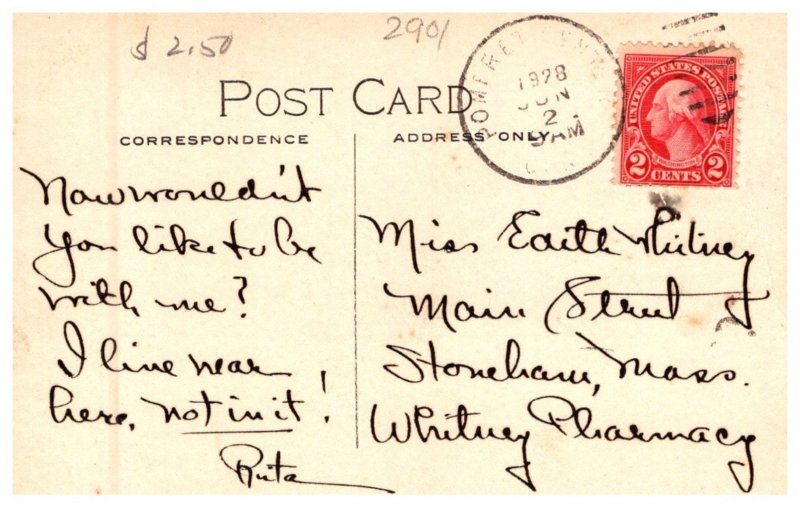 $ 2.50
2901
POST CARD
CORRESPONDENCE
ADDRESS ONLY
POMFRET
1928
JUN
2
AM
CONN.
UNITED STATES POSTAGE
WASHINGTON
2 CENTS 2
Now wouldn't
you like to be
with me?
I live near
here, not in it!
Ruta
Miss Edith Whitney
Main Street
Stoneham, Mass.
Whitney Pharmacy